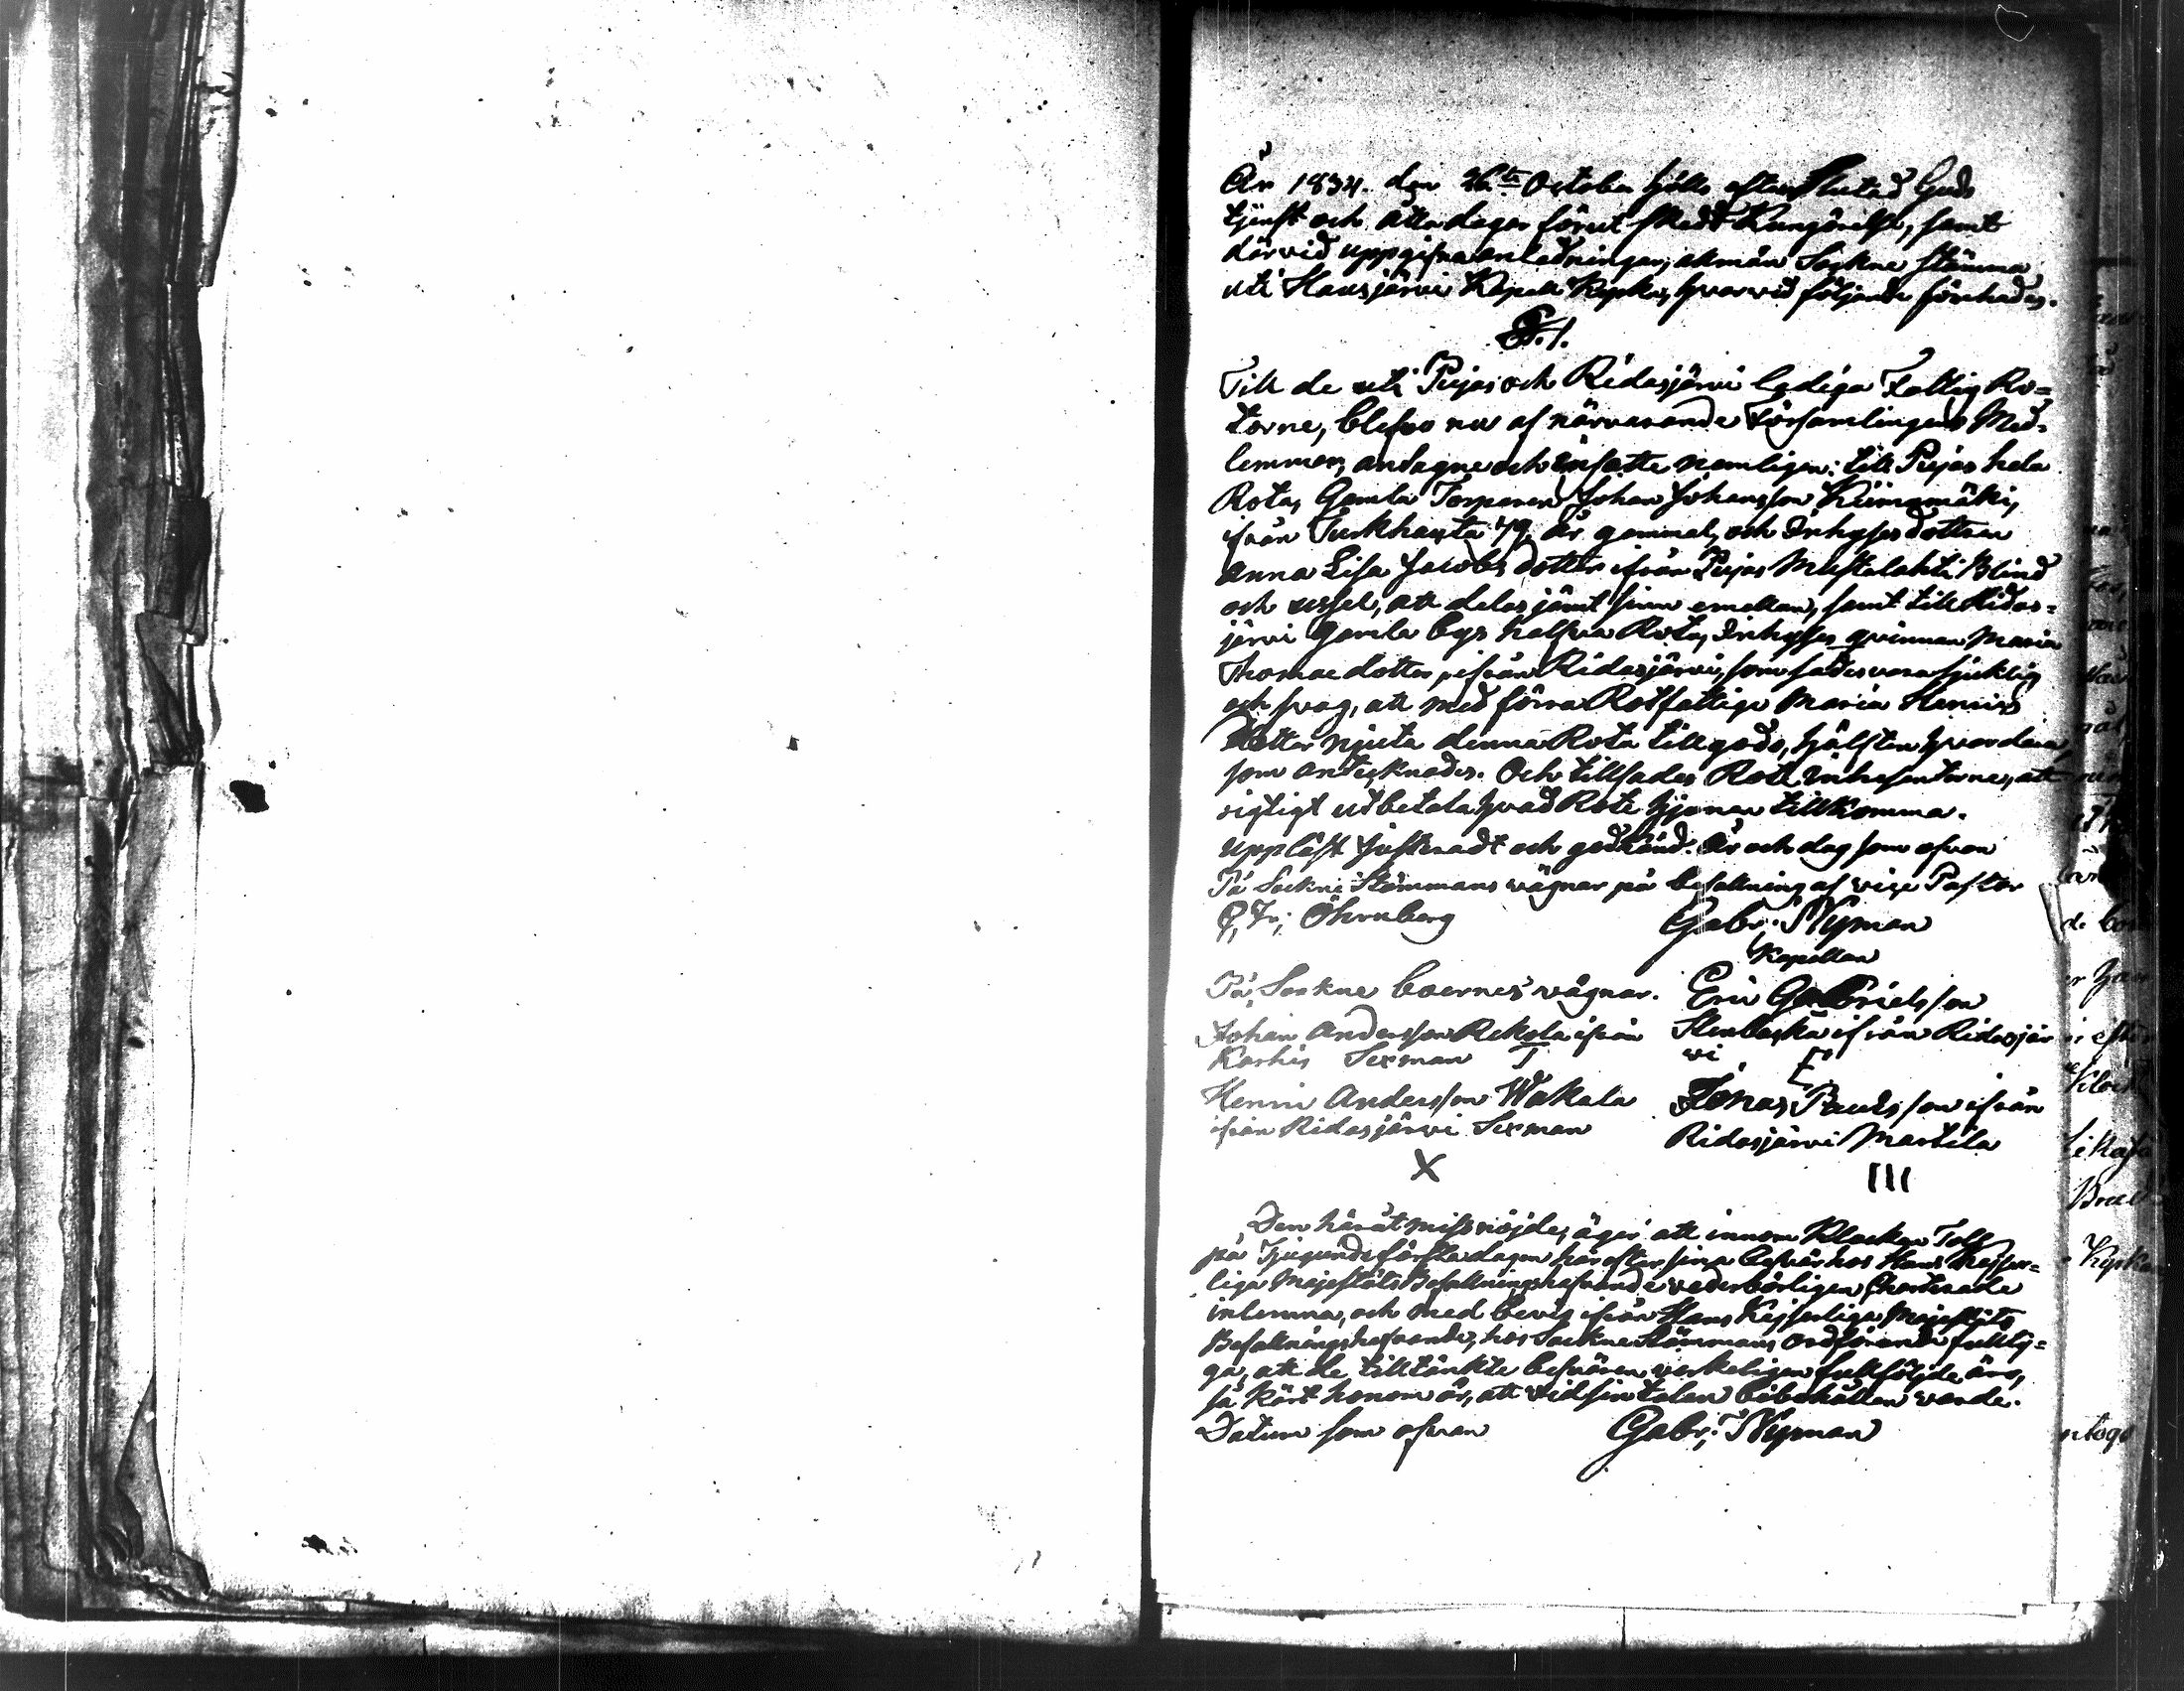 År 1834. den 26te October hölls efter slutad Guds
tjenst och åtta dagar förut skedt Kungörelse, samt
därvid uppgifna anledningar, almän Sockne stämma
uti Hausjärvi Kapell Kyrka, hvarvid följande förehades.
§.1.
Till de uti Pujas och Ridasjärvi lediga Fattig Ro=
torne, blefvo nu af närvarande Församlingens Med=
lemmar, antagne och insatte nemligen: till Pujas hela
Rota, Gamla Torparen Johan Johansson Kiimamäki,
ifrån Turkhauta 79 år gammal, och Inhyses dottren
Anna Lisa Jacobs dotter ifrån Pujas Mustalahti Blind
och ussel, att delas jämt sinn emellan, samt till Ridas=
järvi Gamla bys halfva Rota, Inhyses qvinnan Maria
Thomae dotter, ifrån Ridasjärvi, som sades vara sjuklig
och svag, att med förra Rotfattiga Maria Henrics
dotter njuta denna Rota tillgodo, hälften hvardera,
som antecknades. Och tillsades Rote innehafvarne, att
rigtigt utbetala hvad Rote hjonen tillkomma.
Uppläst justeradt och godkänd. År och dag som ofvan
På Sockne Stämmans vägnar på befallning af vice Pastor
Öhrnberg Gabr: Nyman
Kapellan
På Sockne boernes vägnar. Eric Gabrielsson
Johan Andersson Rekola ifrån Stenbacka ifrån Ridasjär
Karhis Sexman T vi E
Henric Andersson Wäkala Jonas Paulsson ifrån
ifrån Ridasjärvi Sexman Ridasjärvi Martila
X III
Den häråt missnöjde, äger att innom Klockan Tolf
på Tjugundeförsta dagen härefter sina besvär hos Hans Kejser=
liga Majestäts Befallningshafvande vederbörligen Charterade
inlemna, och med bevis ifrån Hans Kejserliga Majestäts
Befallningshafvande, hos Sockne Stämmans Ordförande fullty=
ga, att de tilltänkte besvären verkeligen fullföljde äro,
så kärt honom är, att vid sin talan bibehållen varde.
Datum som ofvan Gabr: Nyman